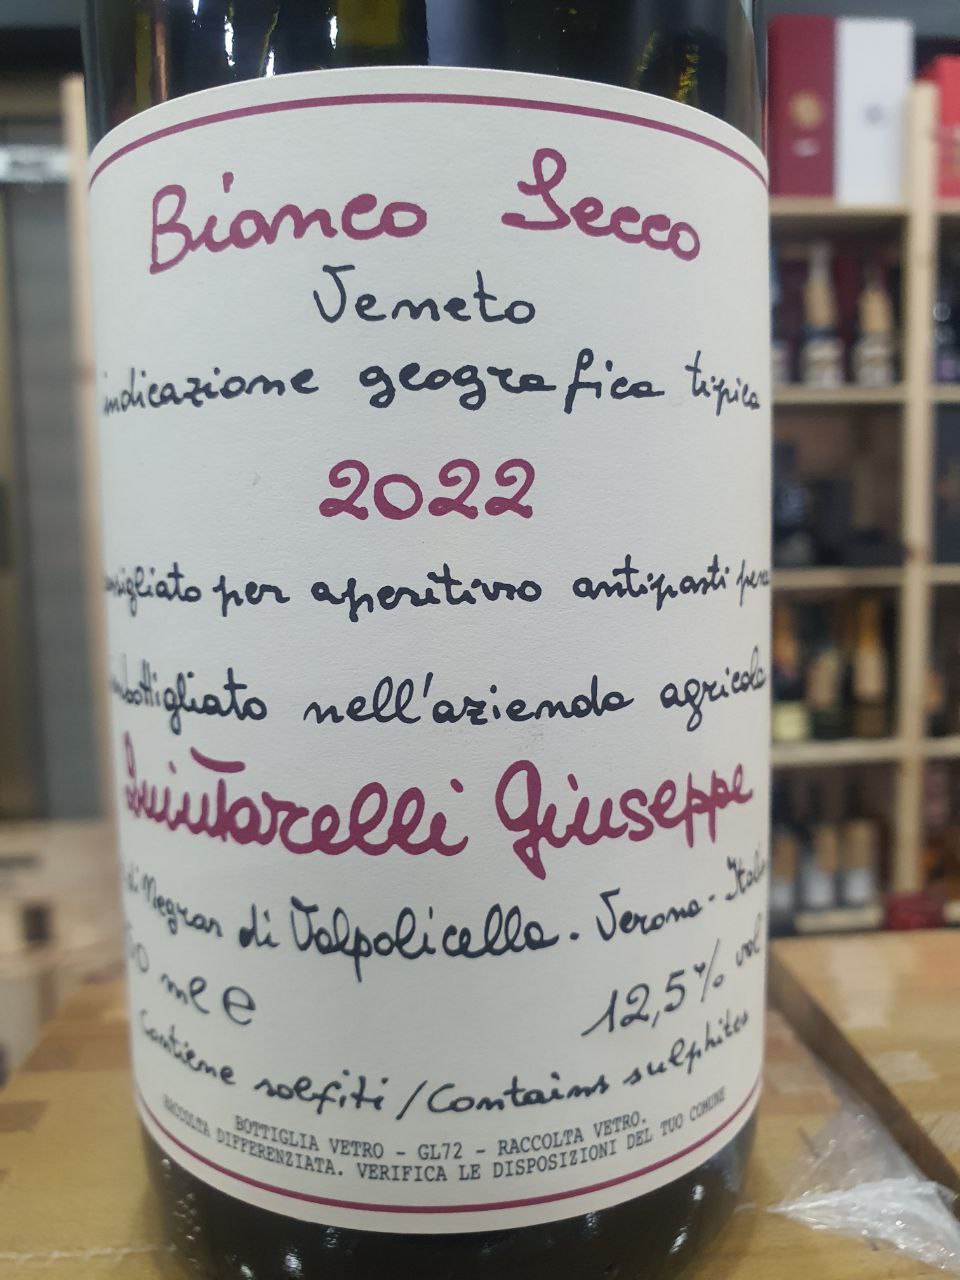 Bianco Secco
Veneto
indicazione geografica tipica
2022
per aperitivo antipasti
imbottigliato nell'azienda agricola
Quintarelli Giuseppe
di Negrar di Valpolicella. Verona - Italia
ml e 12,5% vol
Contiene solfiti / Contains sulphites
BOTTIGLIA VETRO - GL72 - RACCOLTA VETRO.
RACCOLTA DIFFERENZIATA. VERIFICA LE DISPOSIZIONI DEL TUO COMUNE